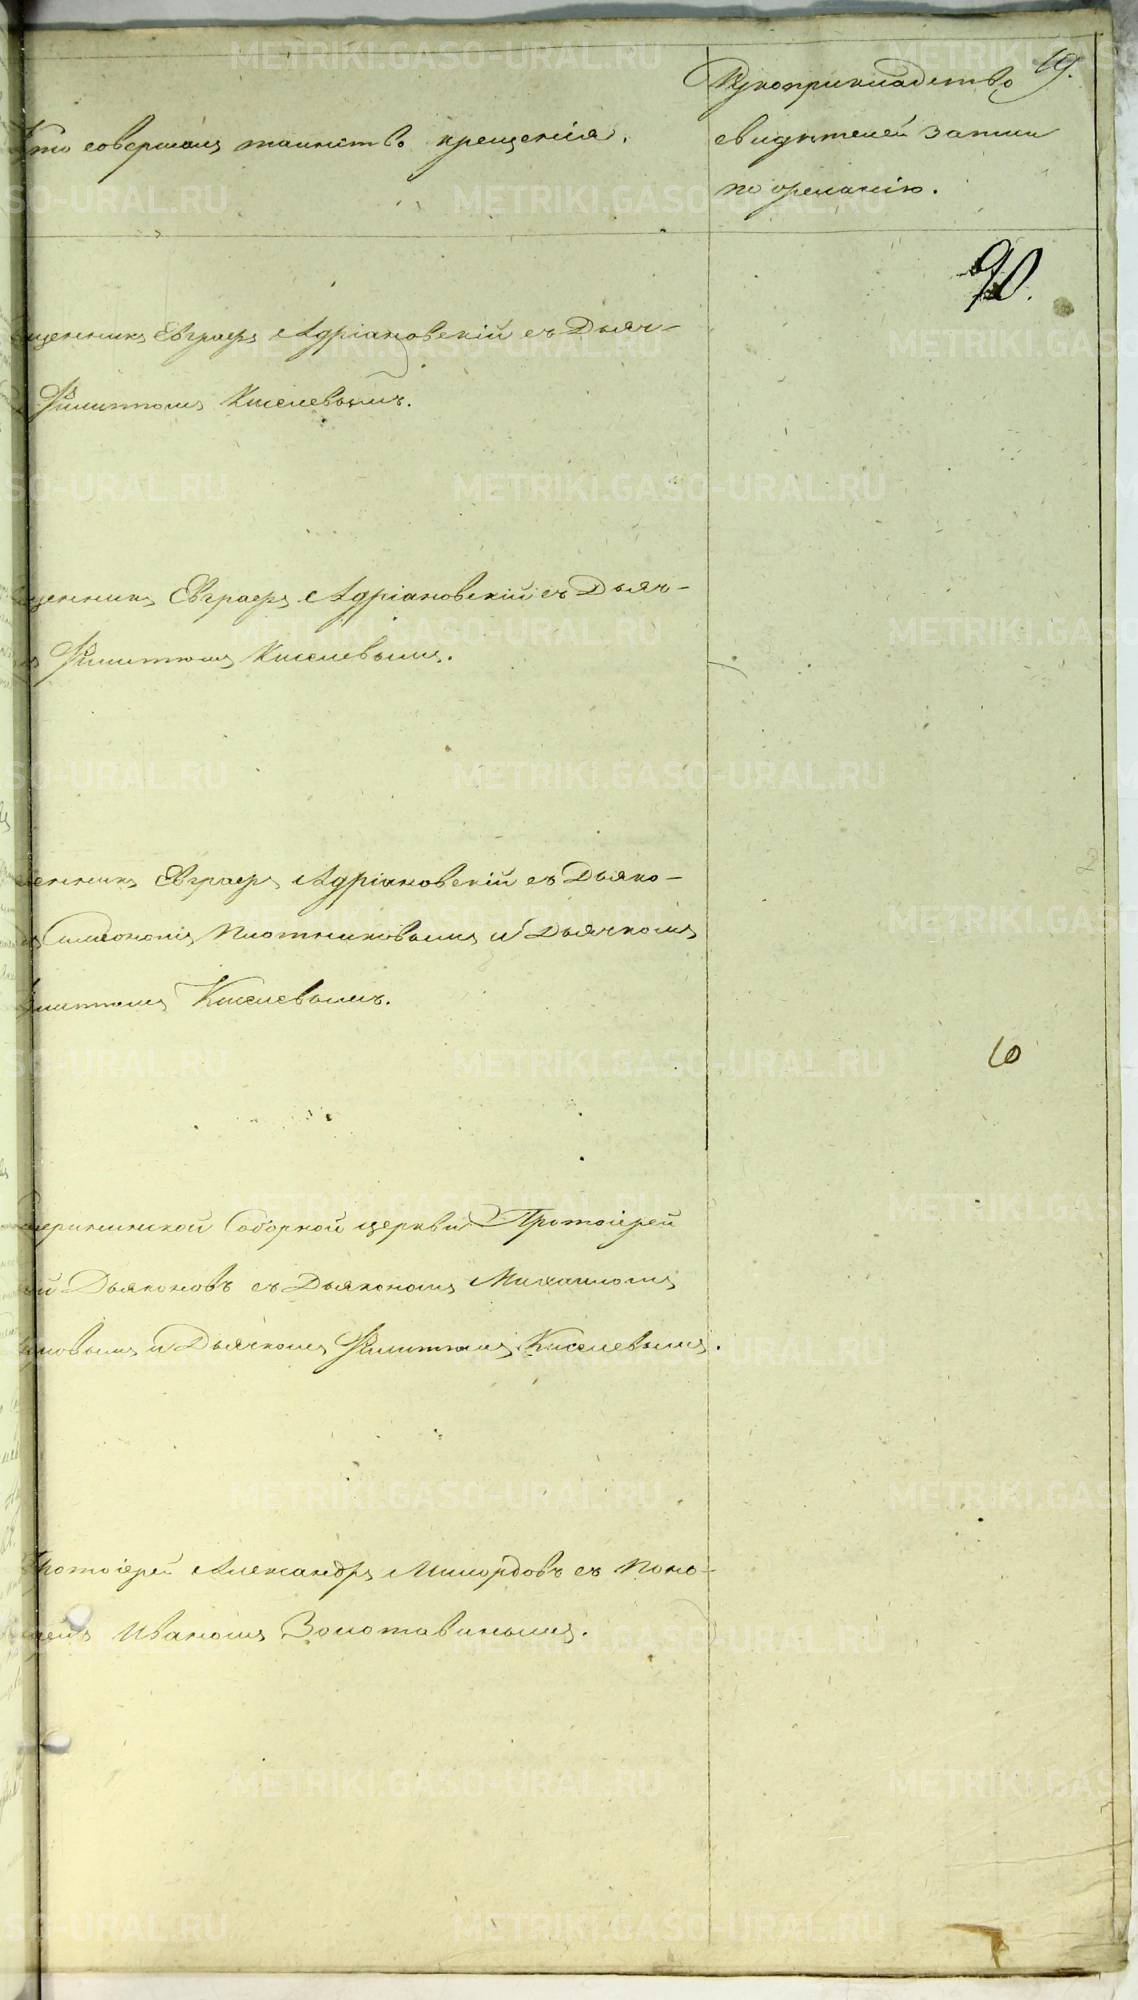 Кто совершалъ таинство крещенія.
Рукоприкладство
свидѣтелей записи
по желанію.
19.
90.
щенникъ Евграфъ Адріановскій съ Дьяч-
Филиппомъ Киселевымъ.
щенникъ Евграфъ Адріановскій съ Дьяч-
Филиппомъ Киселевымъ.
енникъ Евграфъ Адріановскій съ Дьяко-
Симеономъ Плотниковымъ и Дьячкомъ
илиппомъ Киселевымъ.
10
терининской Соборной церкви Протоіерей
ій Дьяконовъ съ Дьякономъ Михаиломъ
новымъ и Дьячкомъ Филиппомъ Киселевымъ.
ротоіерей Александръ Милордовъ съ Поно-
remъ Иваномъ Золотавинымъ.